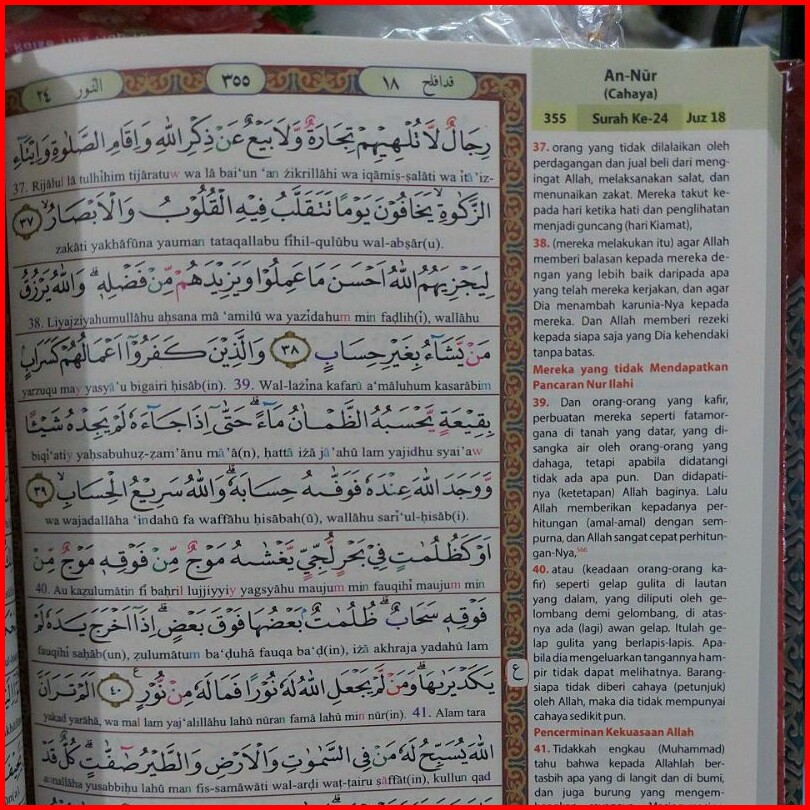 النور ٢٤
٣٥٥
قدافلح ١٨
رِجَالٌ لَّا تُلْهِيْهِمْ تِجَارَةٌ وَّلَا بَيْعٌ عَنْ ذِكْرِ اللّٰهِ وَاِقَامِ الصَّلٰوةِ وَاِيْتَاۤءِ
37. Rijālul lā tulhīhim tijāratuw wa lā bai‘un ‘an żikrillāhi wa iqāmiṣ-ṣalāti wa ītā'iz-
الزَّكٰوةِ يَخَافُوْنَ يَوْمًا تَتَقَلَّبُ فِيْهِ الْقُلُوْبُ وَالْاَبْصَارُ ٣٧
zakāti yakhāfūna yauman tataqallabu fīhil-qulūbu wal-abṣār(u).
لِيَجْزِيَهُمُ اللّٰهُ اَحْسَنَ مَا عَمِلُوْا وَيَزِيْدَهُمْ مِّنْ فَضْلِهٖۗ وَاللّٰهُ يَرْزُقُ
38. Liyajziyahumullāhu aḥsana mā ‘amilū wa yazīdahum min faḍlih(ī), wallāhu
مَنْ يَّشَاۤءُ بِغَيْرِ حِسَابٍ ٣٨ وَالَّذِيْنَ كَفَرُوْٓا اَعْمَالُهُمْ كَسَرَابٍ
yarzuqu may yasyā'u bigairi ḥisāb(in). 39. Wal-lażīna kafarū a‘māluhum kasarābim
بِقِيْعَةٍ يَّحْسَبُهُ الظَّمْاٰنُ مَاۤءًۗ حَتّٰٓى اِذَا جَاۤءَهٗ لَمْ يَجِدْهُ شَيْـًٔا
biqī‘atiy yaḥsabuhuẓ-ẓam'ānu mā'ā(n), ḥattā iżā jā'ahū lam yajidhu syai'aw
وَّوَجَدَ اللّٰهَ عِنْدَهٗ فَوَفّٰىهُ حِسَابَهٗۗ وَاللّٰهُ سَرِيْعُ الْحِسَابِ ٣٩
wa wajadallāha ‘indahū fa waffāhu ḥisābah(ū), wallāhu sarī‘ul-ḥisāb(i).
اَوْ كَظُلُمٰتٍ فِيْ بَحْرٍ لُّجِّيٍّ يَّغْشٰىهُ مَوْجٌ مِّنْ فَوْقِهٖ مَوْجٌ مِّنْ
40. Au kaẓulumātin fī baḥril lujjiyyiy yagsyāhu maujum min fauqihī maujum min
فَوْقِهٖ سَحَابٌۗ ظُلُمٰتٌۢ بَعْضُهَا فَوْقَ بَعْضٍۗ اِذَآ اَخْرَجَ يَدَهٗ لَمْ
fauqihī saḥāb(un), ẓulumātum ba‘ḍuhā fauqa ba‘ḍ(in), iżā akhraja yadahū lam
يَكَدْ يَرٰىهَاۗ وَمَنْ لَّمْ يَجْعَلِ اللّٰهُ لَهٗ نُوْرًا فَمَا لَهٗ مِنْ نُّوْرٍ ٤٠ اَلَمْ تَرَ اَنَّ
yakad yarāhā, wa mal lam yaj‘alillāhu lahū nūran famā lahū min nūr(in). 41. Alam tara
اللّٰهَ يُسَبِّحُ لَهٗ مَنْ فِى السَّمٰوٰتِ وَالْاَرْضِ وَالطَّيْرُ صٰۤفّٰتٍۗ كُلٌّ قَدْ
annallāha yusabbiḥu lahū man fis-samāwāti wal-arḍi waṭ-ṭairu ṣāffāt(in), kullun qad
ع
An-Nūr
(Cahaya)
355 Surah Ke-24 Juz 18
37. orang yang tidak dilalaikan oleh
perdagangan dan jual beli dari meng-
ingat Allah, melaksanakan salat, dan
menunaikan zakat. Mereka takut ke-
pada hari ketika hati dan penglihatan
menjadi guncang (hari Kiamat),
38. (mereka melakukan itu) agar Allah
memberi balasan kepada mereka de-
ngan yang lebih baik daripada apa
yang telah mereka kerjakan, dan agar
Dia menambah karunia-Nya kepada
mereka. Dan Allah memberi rezeki
kepada siapa saja yang Dia kehendaki
tanpa batas.
Mereka yang tidak Mendapatkan
Pancaran Nur Ilahi
39. Dan orang-orang yang kafir,
perbuatan mereka seperti fatamor-
gana di tanah yang datar, yang di-
sangka air oleh orang-orang yang
dahaga, tetapi apabila didatangi
tidak ada apa pun. Dan didapati-
nya (ketetapan) Allah baginya. Lalu
Allah memberikan kepadanya per-
hitungan (amal-amal) dengan sem-
purna, dan Allah sangat cepat perhitun-
gan-Nya,
40. atau (keadaan orang-orang ka-
fir) seperti gelap gulita di lautan
yang dalam, yang diliputi oleh ge-
lombang demi gelombang, di atas-
nya ada (lagi) awan gelap. Itulah ge-
lap gulita yang berlapis-lapis. Apa-
bila dia mengeluarkan tangannya ham-
pir tidak dapat melihatnya. Barang-
siapa tidak diberi cahaya (petunjuk)
oleh Allah, maka dia tidak mempunyai
cahaya sedikit pun.
Pencerminan Kekuasaan Allah
41. Tidakkah engkau (Muhammad)
tahu bahwa kepada Allahlah ber-
tasbih apa yang di langit dan di bumi,
dan juga burung yang mengem-